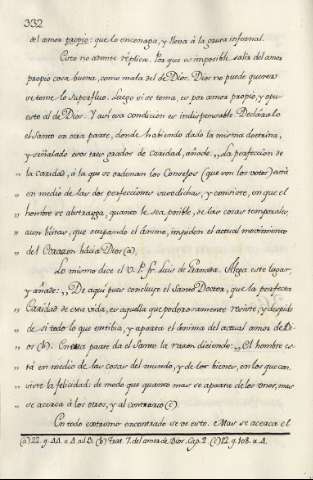 332
del amor propio: que lo encenaga, y lleva à la gzura infernal.
Esto no admite réplica. Por que es imposible salir del amor
propio cosa buena, como mala del de Dios. Dios no puede querer
se teme lo superfluo. Luego si se toma, es por amor propio, y opu-
esto al de Dios. Y aun esta condicion es indispensable. Declaralo
el Santo en otra parte, donde habiendo dado la misma doctrina,
y señalado esos tres grados de Caridad, añade: „ La perfeccion de
„ la caridad, à la que se ordenan los Consejos (que son los votos) está
„ en medio de las dos perfecciones susodichas, y consiste, en que el
„ hombre se abstrayga, quanto le sea posible, de las cosas temporales,
„ aun licitas, que ocupando el ánimo, impiden el actual movimiento
„ del Corazon hácia Dios (a).
Lo mismo dice el V. P. Fr. Luis de Granada. Alega este lugar,
y añade: „ De aqui pues concluye el Santo Doctor, que la perfecta
„ Caridad de esta vida, es aquella que poderosamente resiste, y despide
„ de sí todo lo que entibia, y aparta el ánima del actual amor de Di-
„ os (b). En otra parte da el Santo la razon diciendo: „ El hombre es-
„ tá en medio de las cosas del mundo, y de los bienes, en los que con-
„ siste la felicidad: de modo que quanto mas se aparte de los unos, mas
„ se acerca à los otros, y al contrario (c).
En todo extremo encontrado se ve esto. Mas se acerca el
(a) 22. q. 44. a. 4 ad 3. (b) Trat. 7. del amor de Dios. Cap. 2. (c) 12. q. 108. a. 4.